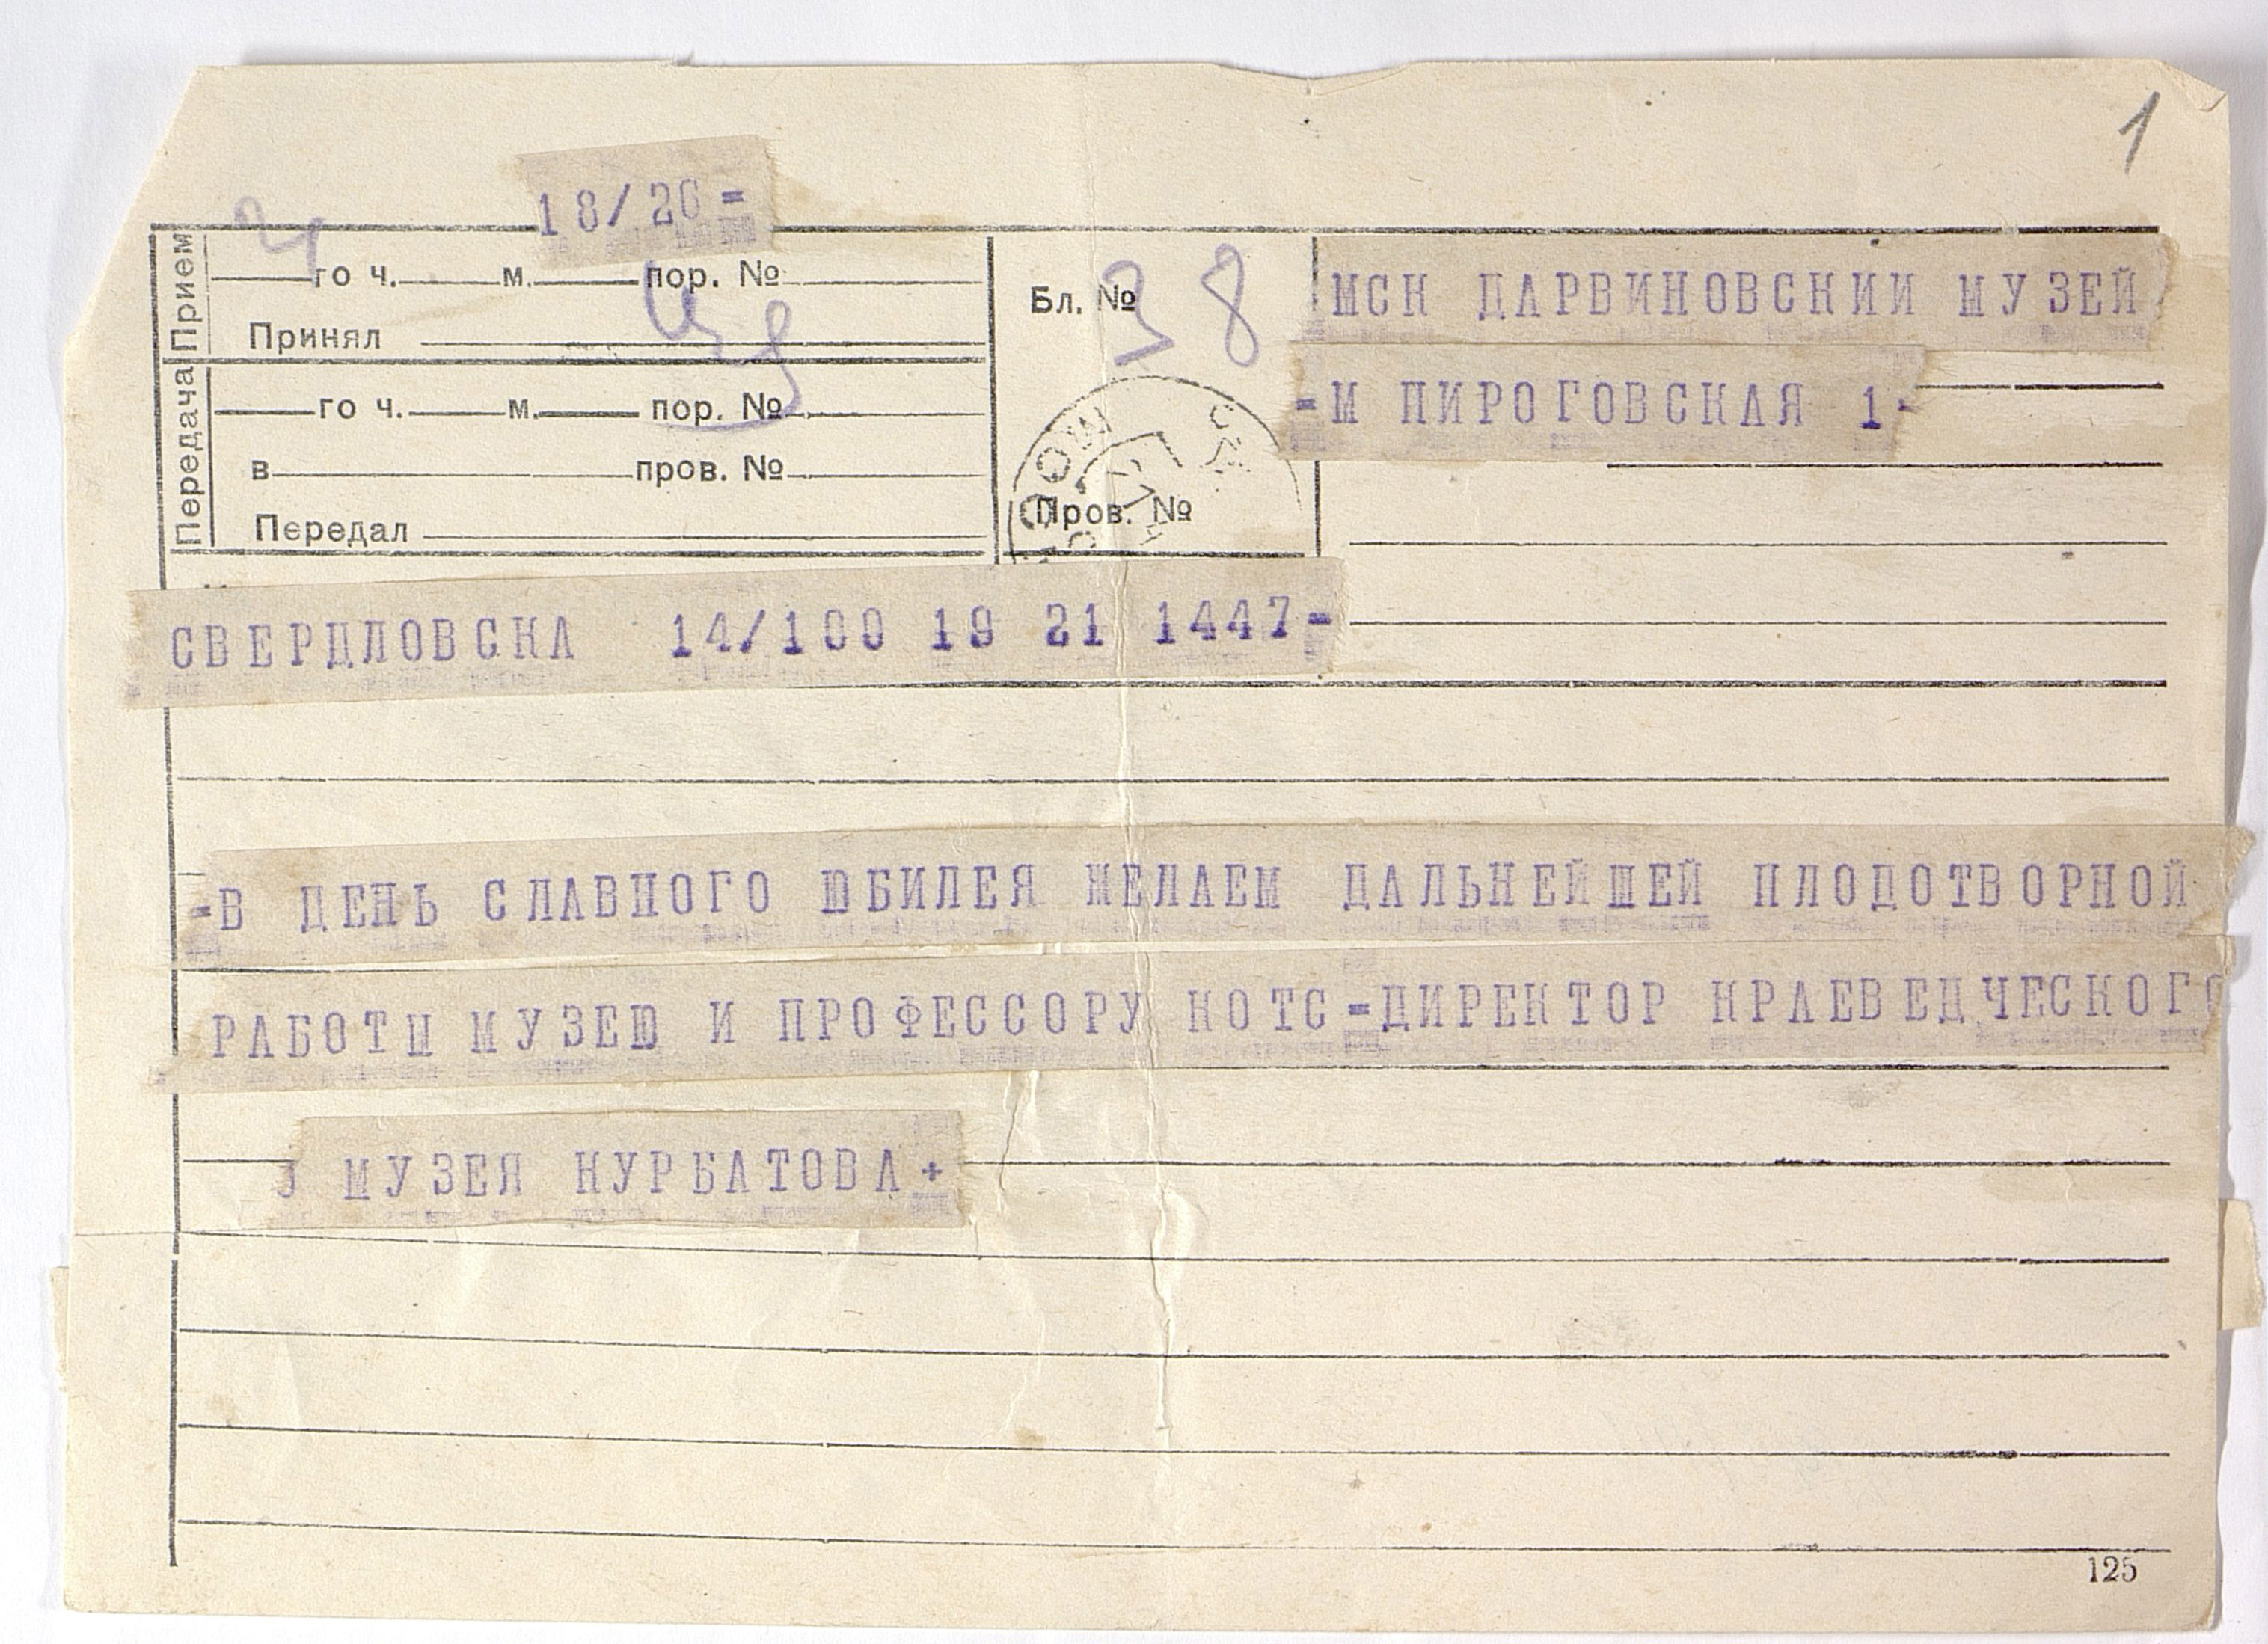 1
18/20=
Прием
го ч. м. пор. №
Принял
Передача
го ч. м. пор. №
в пров. №
Передал
Бл. № 38
Пров. №
МСК ДАРВИНОВСКИЙ МУЗЕЙ
=М ПИРОГОВСКАЯ 1=
СВЕРДЛОВСКА 14/100 19 21 1447=
=В ДЕНЬ СЛАВНОГО ЮБИЛЕЯ ЖЕЛАЕМ ДАЛЬНЕЙШЕЙ ПЛОДОТВОРНОЙ
РАБОТЫ МУЗЕЮ И ПРОФЕССОРУ КОТС=ДИРЕКТОР КРАЕВЕДЧЕСКОГО
МУЗЕЯ КУРБАТОВА+
125